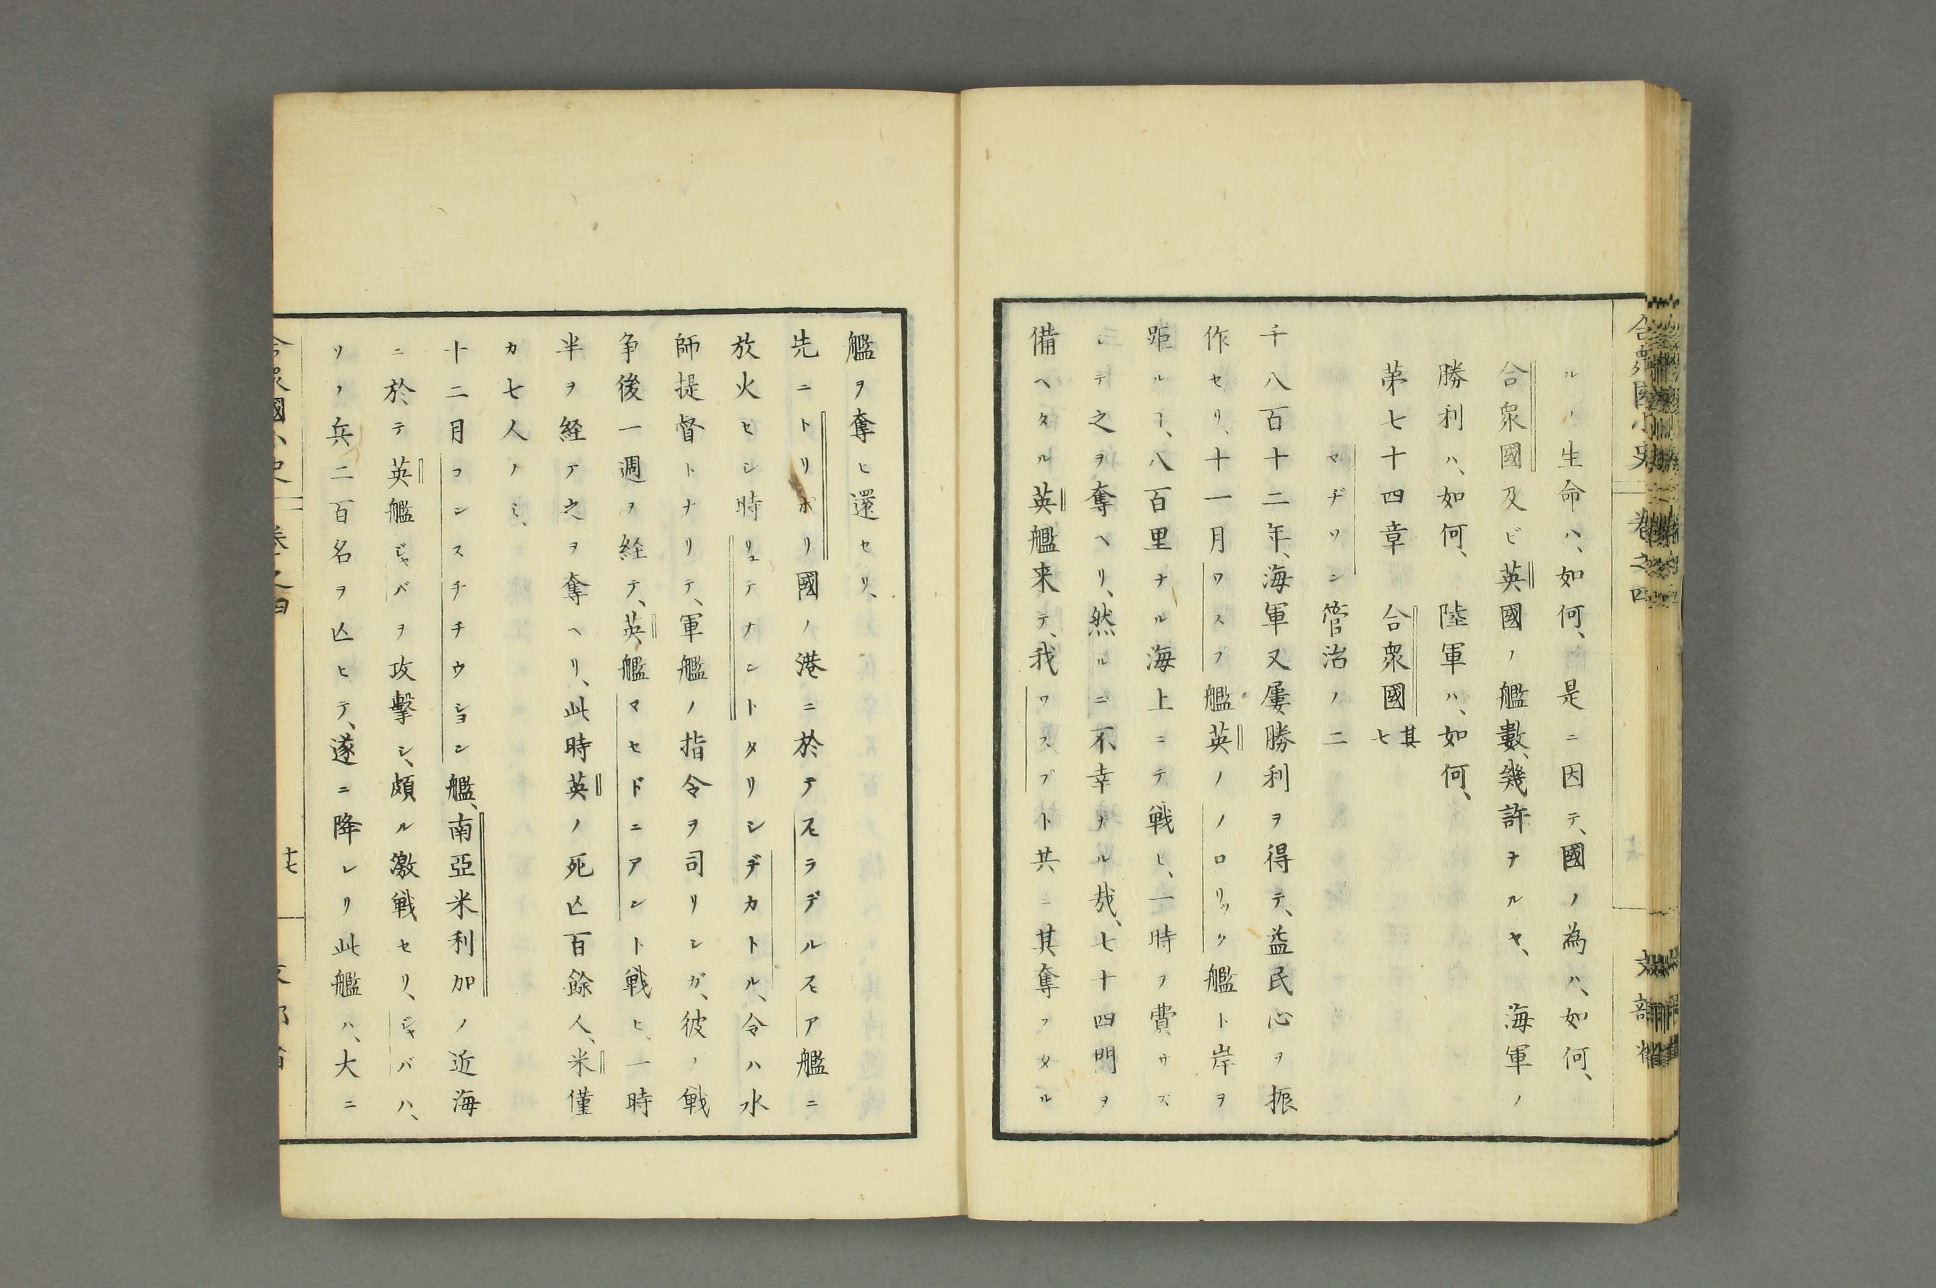 合衆國小史 卷之四 文部省
ルノ生命ハ、如何、是ニ因テ、國ノ為ハ、如何、
合衆國及ビ英國ノ艦數、幾許ナルヤ、 海軍ノ
勝利ハ、如何、 陸軍ハ、如何、
第七十四章 合衆國 其七
マヂソン管治ノ二
千八百十二年、海軍又屢勝利ヲ得テ、益民心ヲ振
作セリ、十一月ワスプ艦英ノフロリック艦ト岸ヲ
距ルヿ、八百里ナル海上ニテ戦ヒ、一時ヲ費サズ
シテ之ヲ奪ヘリ、然ルニ不幸ナル哉、七十四門ヲ
備ヘタル英艦来テ、我ワスプト共ニ其奪フタル
艦ヲ奪ヒ還セリ、
先ニトリポリ國ノ港ニ於テヒラデルヒア艦ニ
放火セシ時リュテナントタリシヂカトル、今ハ水
師提督トナリテ、軍艦ノ指令ヲ司リシガ、彼ノ戦
争後一週ヲ経テ、英艦マセドニアント戦ヒ、一時
半ヲ経テ之ヲ奪ヘリ、此時英ノ死亡百餘人、米僅
カ七人ノミ、
十二月コンスチチウション艦、南亞米利加ノ近海
ニ於テ英艦ジャバヲ攻擊シ、頗ル激戦セリ、ジャバハ、
ソノ兵、二百名ヲ亡ヒテ、遂ニ降レリ此艦ハ、大ニ
合衆國小史 卷之四 十七 文部省